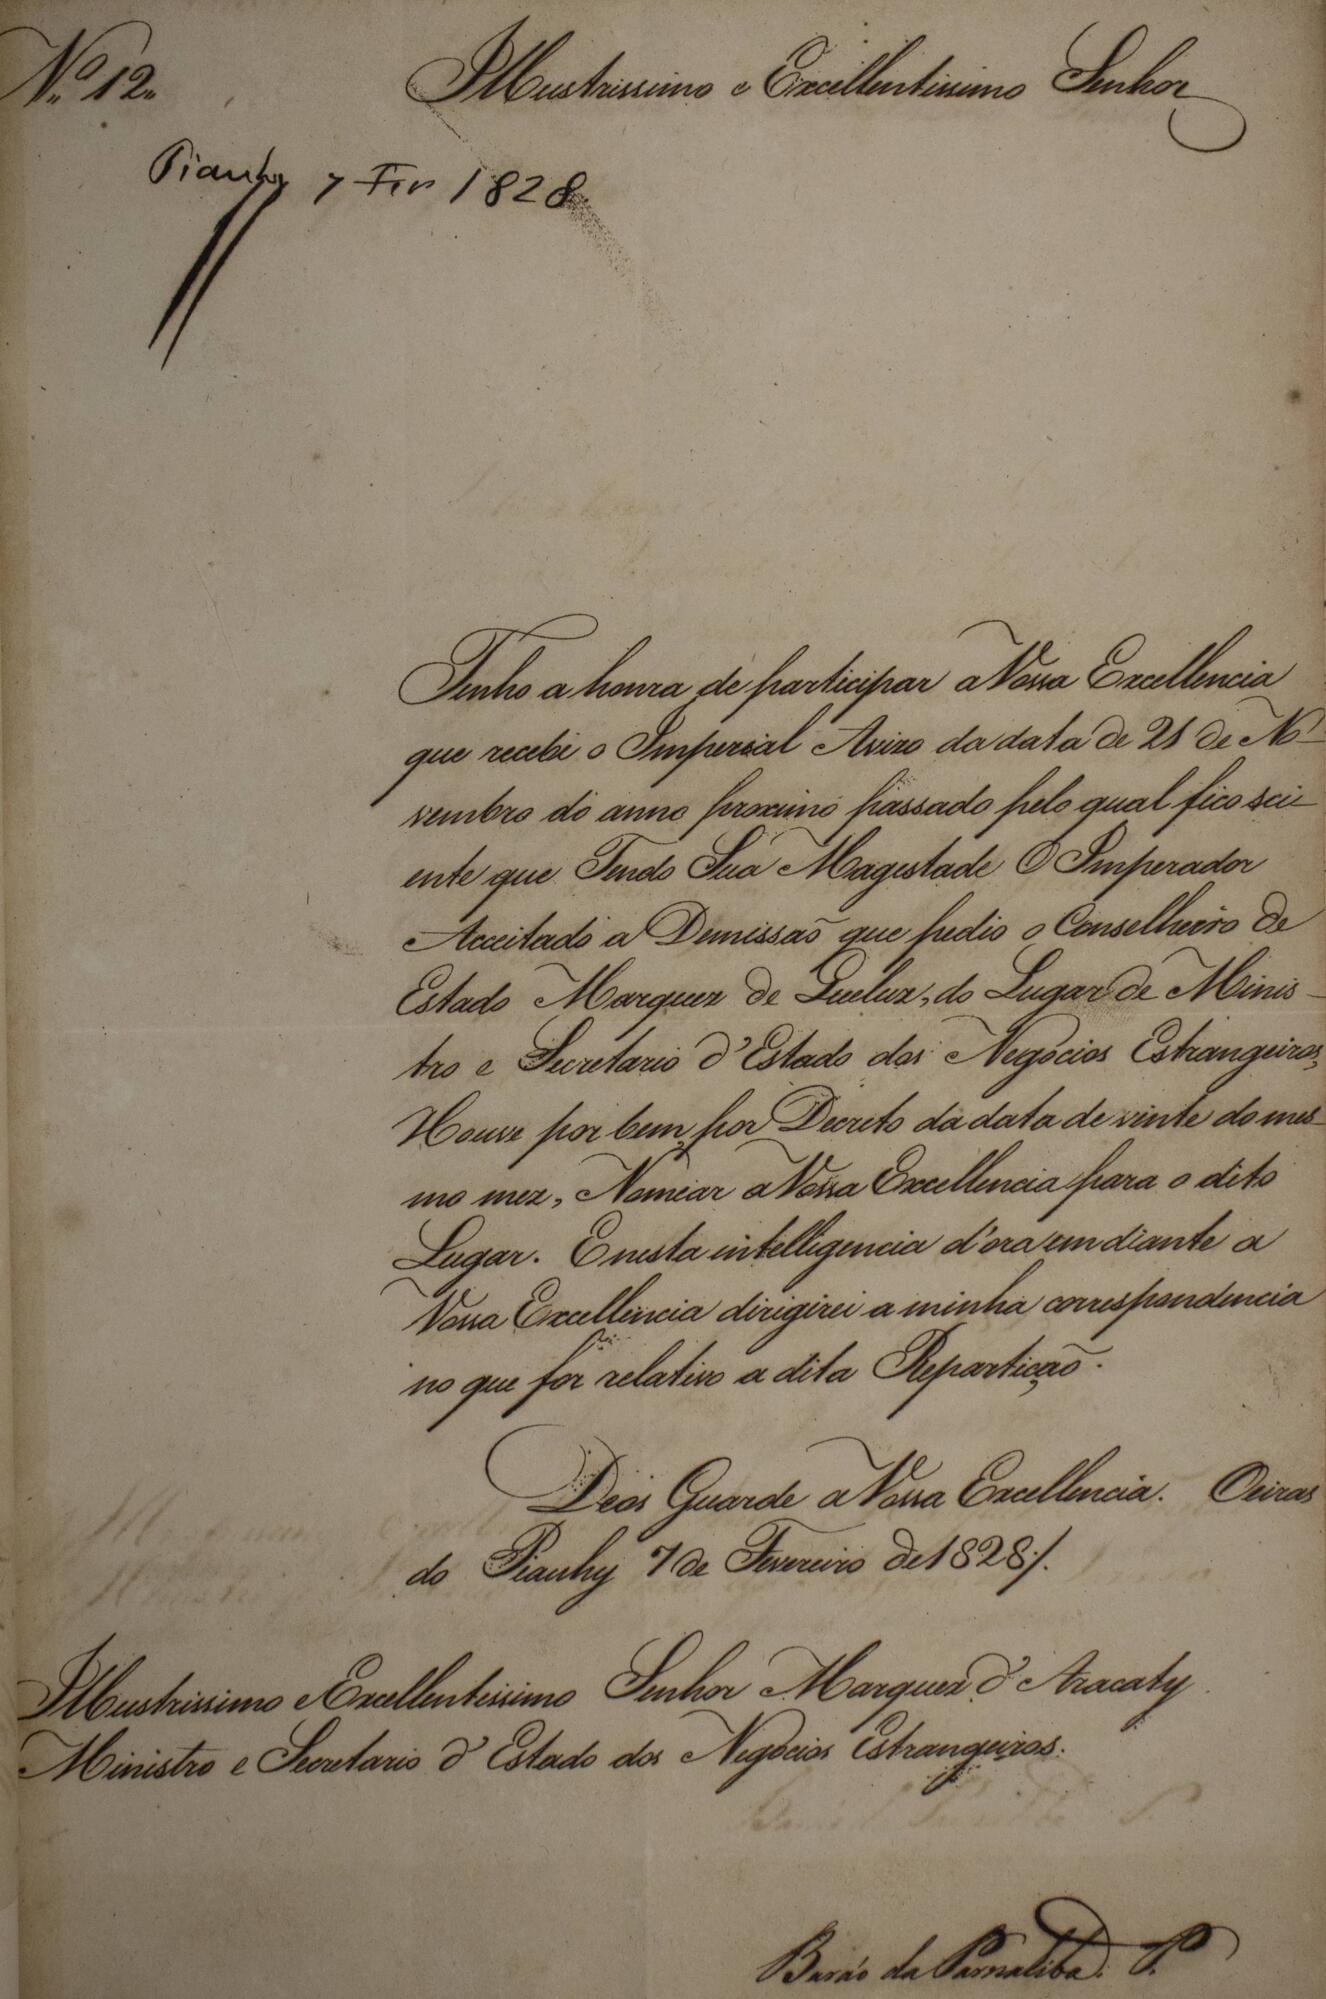 Nº 12.
Illustrissimo e Excellentissimo Senhor
Piauhy 7 Fev 1828
Tenho a honra de participar a Vossa Excellencia
que recebi o Imperial Avizo da data de 21 de No-
vembro do anno proximo passado pelo qual fico sci-
ente que Tendo Sua Magestade O Imperador
Acceitado a Demissaõ que pedio o Conselheiro de
Estado Marquez de Queluz, do Lugar de Minis-
tro e Secretario d'Estado dos Negocios Estrangeiros,
Houve por bem, por Decreto da data de vinte do mes-
mo mez, Nomear a Vossa Excellencia para o dito
Lugar. E nesta intelligencia d'ora em diante a
Vossa Excellencia dirigirei a minha correspondencia
no que for relativo a dita Repartiçaõ.
Deos Guarde a Vossa Excellencia. Oeiras
do Piauhy 7 de Fevereiro de 1828 ./.
Illustrissimo e Excellentissimo Senhor Marquez d'Aracaty
Ministro e Secretario d'Estado dos Negocios Estrangeiros.
Barão da Parnaiba. P.